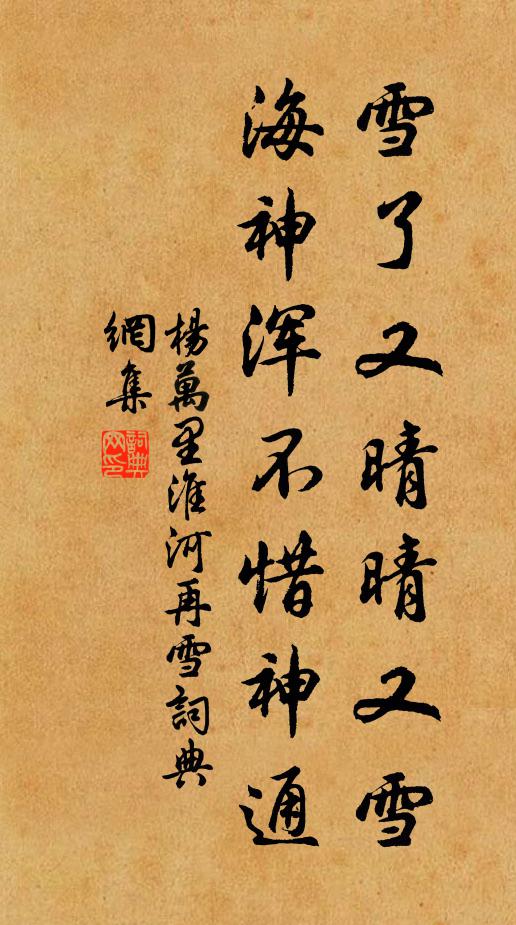 雪了又晴晴又雪
海神浑不惜神通
楊萬里淮河再雪詞典
網集
詞典
网印